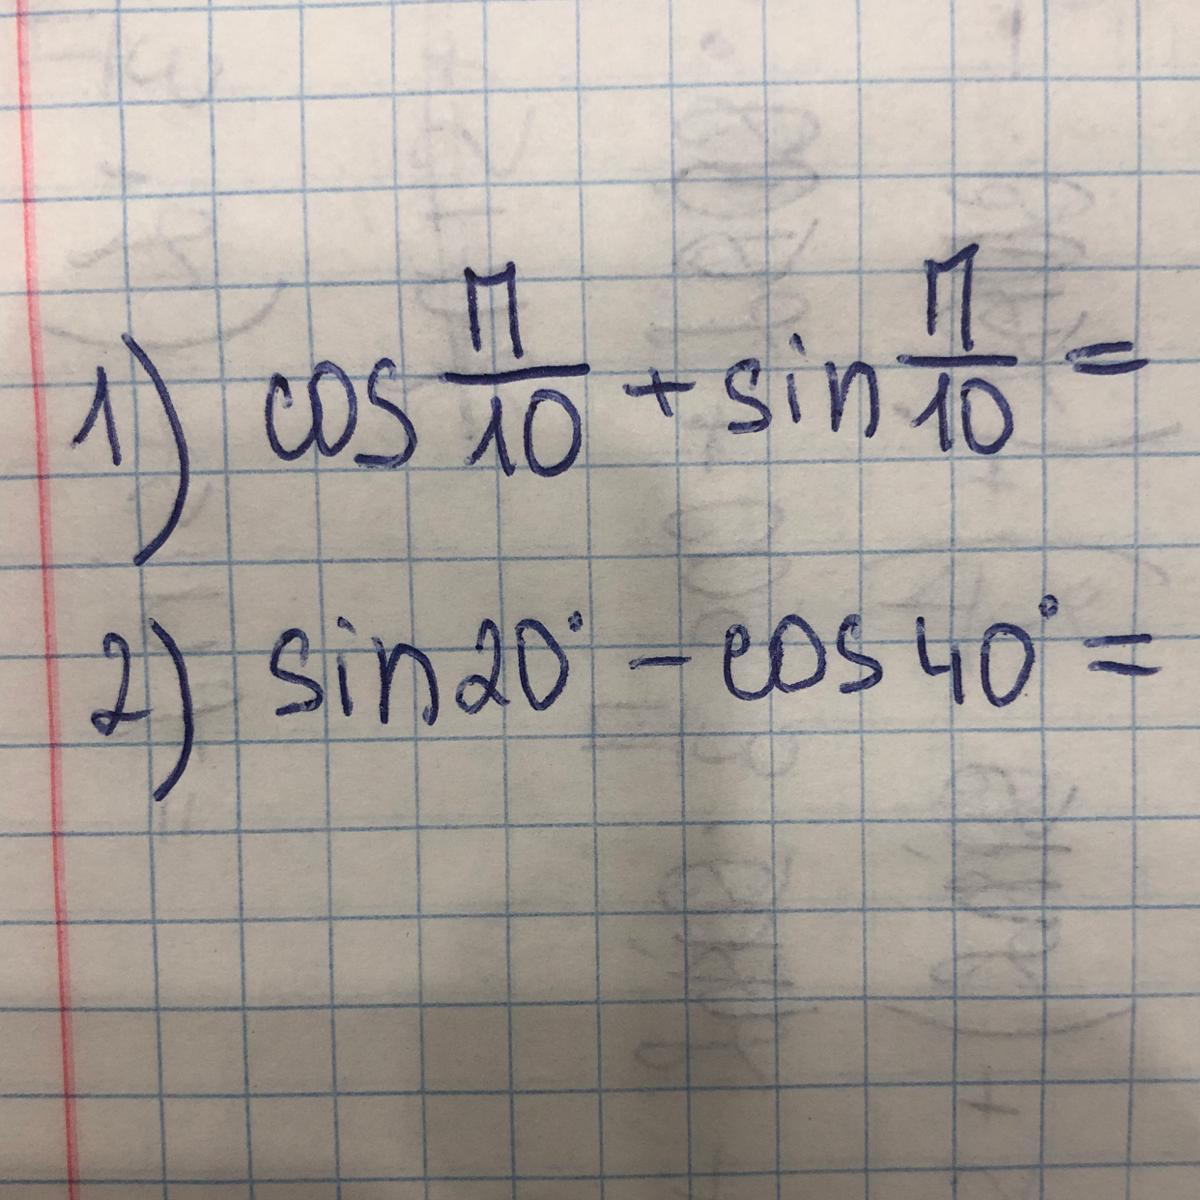 1) cos π/10 + sin π/10 =
2) sin 20° - cos 40° =